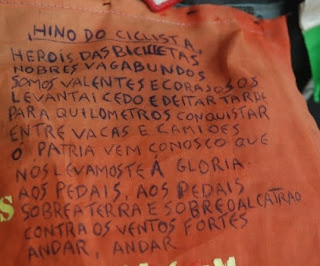 HINO DO CICLISTA,
HEROIS DAS BICICLETAS
NOBRES VAGABUNDOS
SOMOS VALENTES E CORAJOSOS
LEVANTAI CEDO E DEITAR TARDE
PARA QUILOMETROS CONQUISTAR
ENTRE VACAS E CAMIÕES
Ó PATRIA VEM CONOSCO QUE
NÓS LEVAMOSTE Á GLORIA.
AOS PEDAIS, AOS PEDAIS
SOBRE A TERRA E SOBRE O ALCATRÃO
CONTRA OS VENTOS FORTES
ANDAR, ANDAR